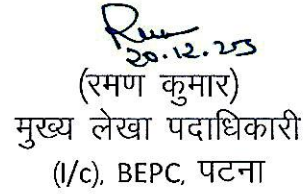 20.12.25
(रमण कुमार)
मुख्य लेखा पदाधिकारी
(I/c), BEPC, पटना